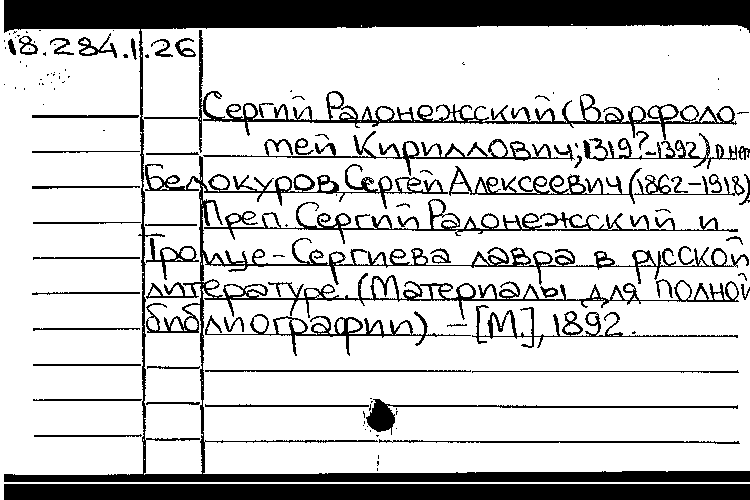 18.284.1.26
Сергий Радонежский (Варфоло-
мей Кириллович; 1319?-1392), о нем
Белокуров, Сергей Алексеевич (1862-1918)
Преп. Сергий Радонежский и
Троице-Сергиева лавра в русской
литературе. (Материалы для полной
библиографии). - [М.], 1892.